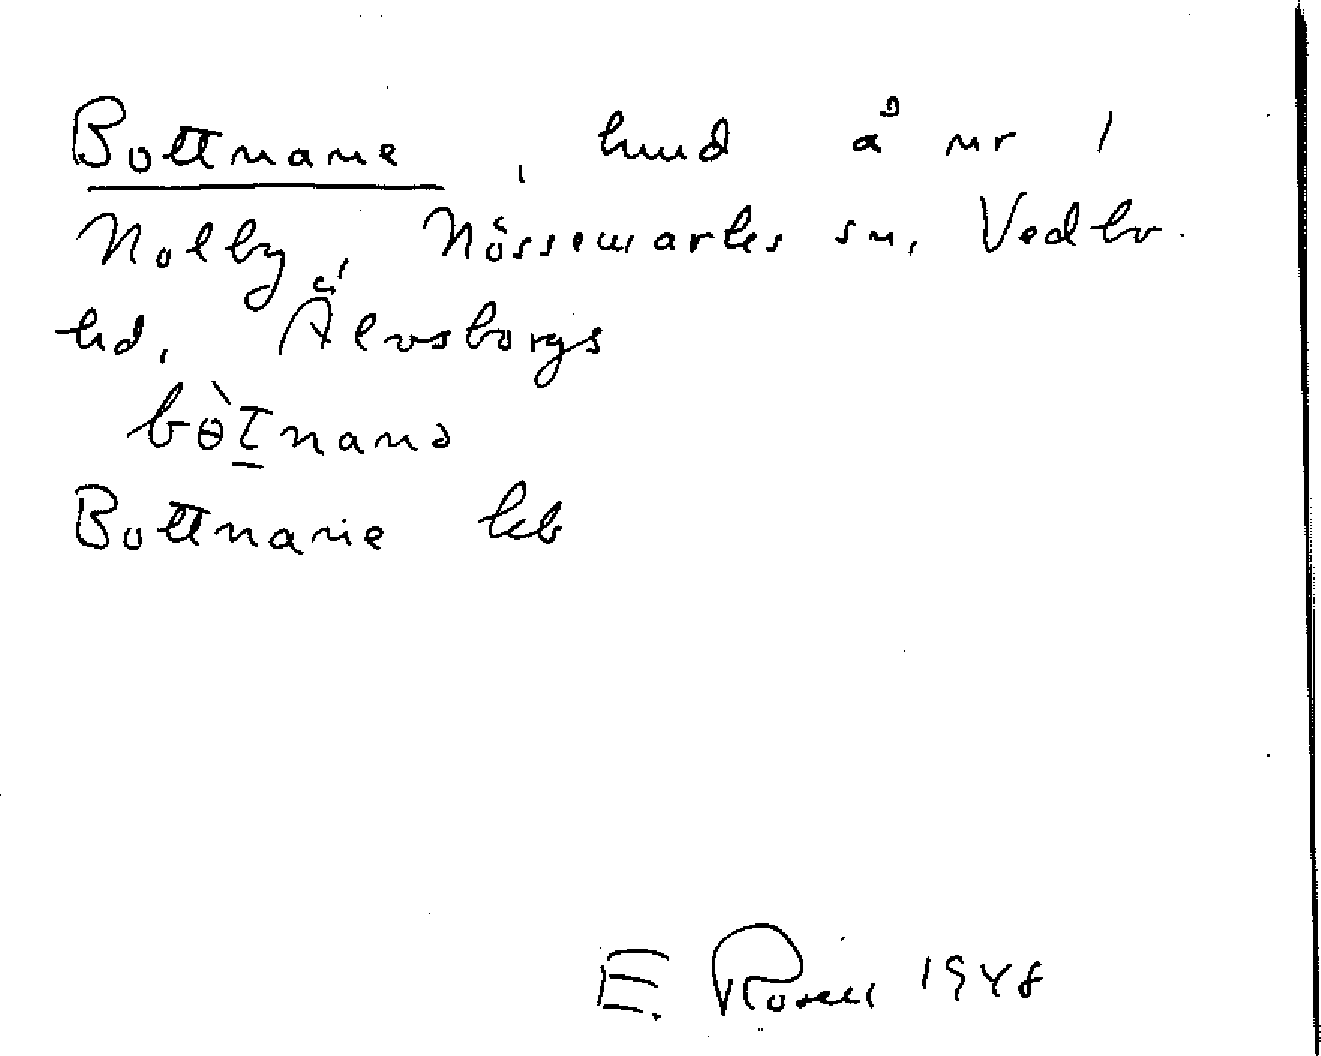 Bottnane, lund å nr 1
Nolby, Nössemarks sn, Vedbo
hd, Älvsborgs
bòtnanə
Bottnane
E. Rosell 1948